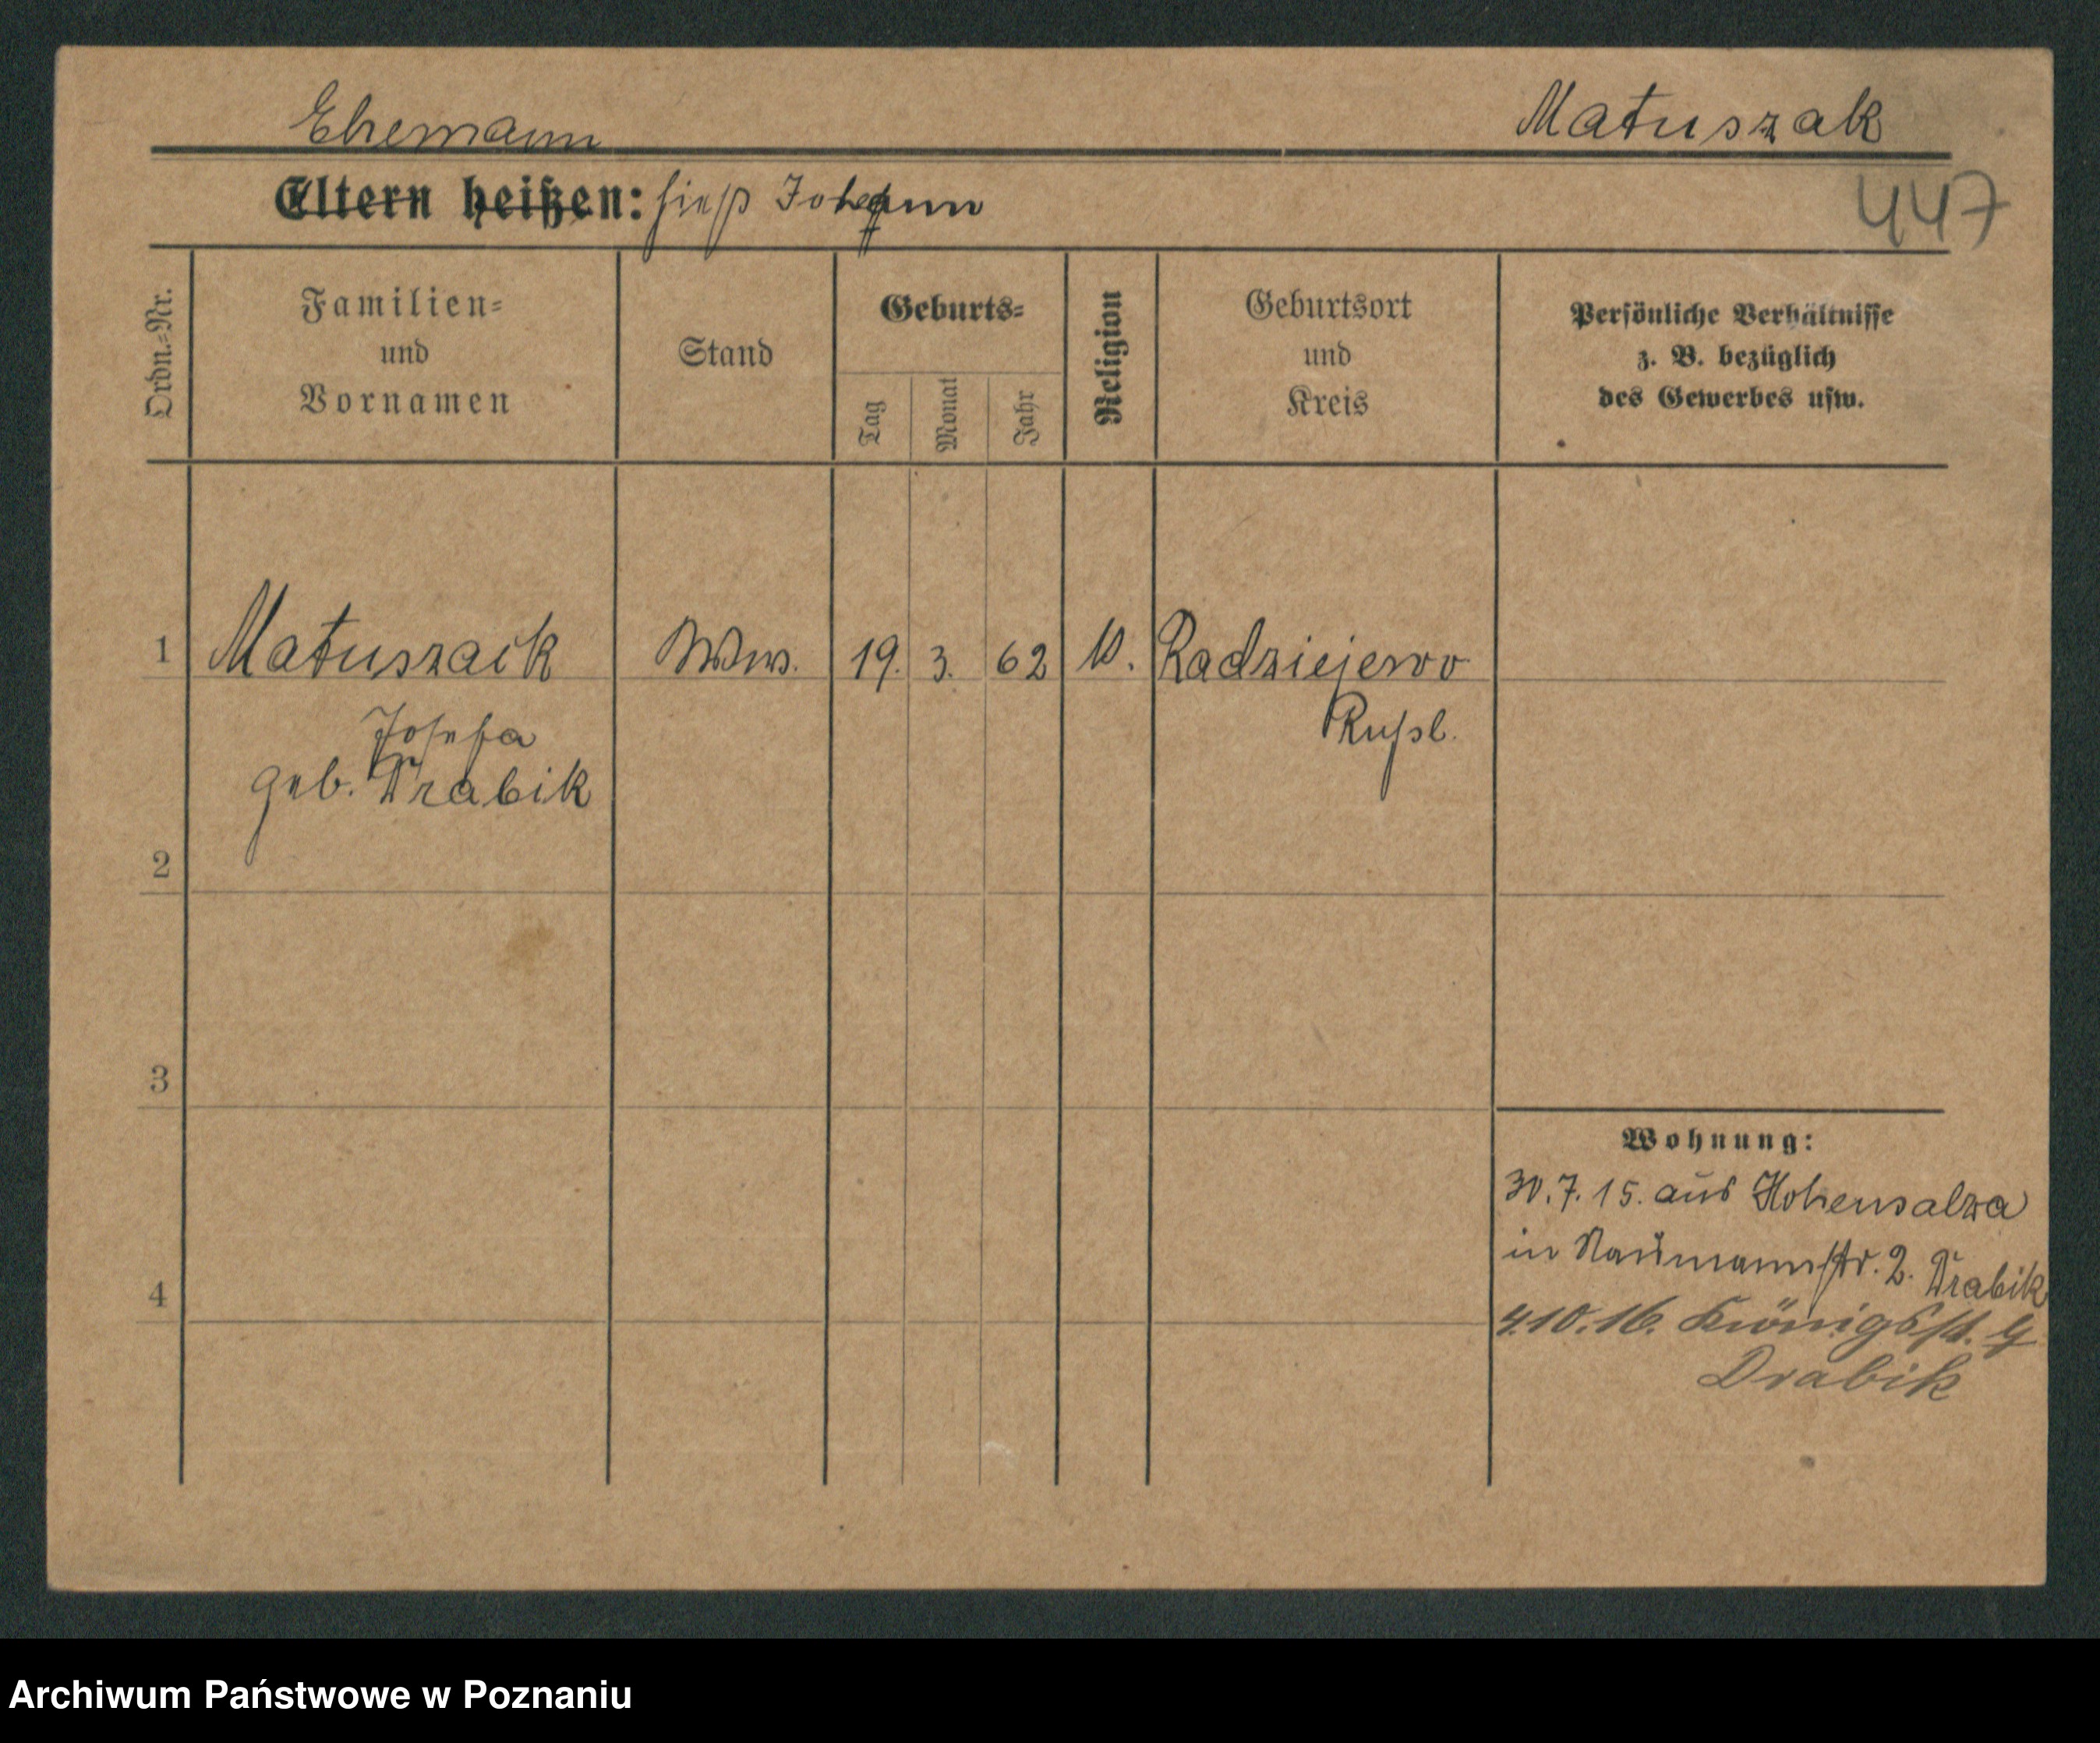 Ehemann Matuszak
Eltern heißen: hieß Johann
447
Ordn.=Nr.
Familien=
und
Vornamen
Stand
Geburts=
Tag
Monat
Jahr
Religion
Geburtsort
und
Kreis
Persönliche Verhältnisse
z. B. bezüglich
des Gewerbes usw.
1 Matuszack Wwe. 19. 3. 62 k. Radziejewo
Josefa Rußl.
geb. Drabik
2
3
4
Wohnung:
30.7.15. aus Hohensalza
in Naumannstr. 2. Drabik
4.10.16. Königsstr. 9
Drabik
Archiwum Państwowe w Poznaniu